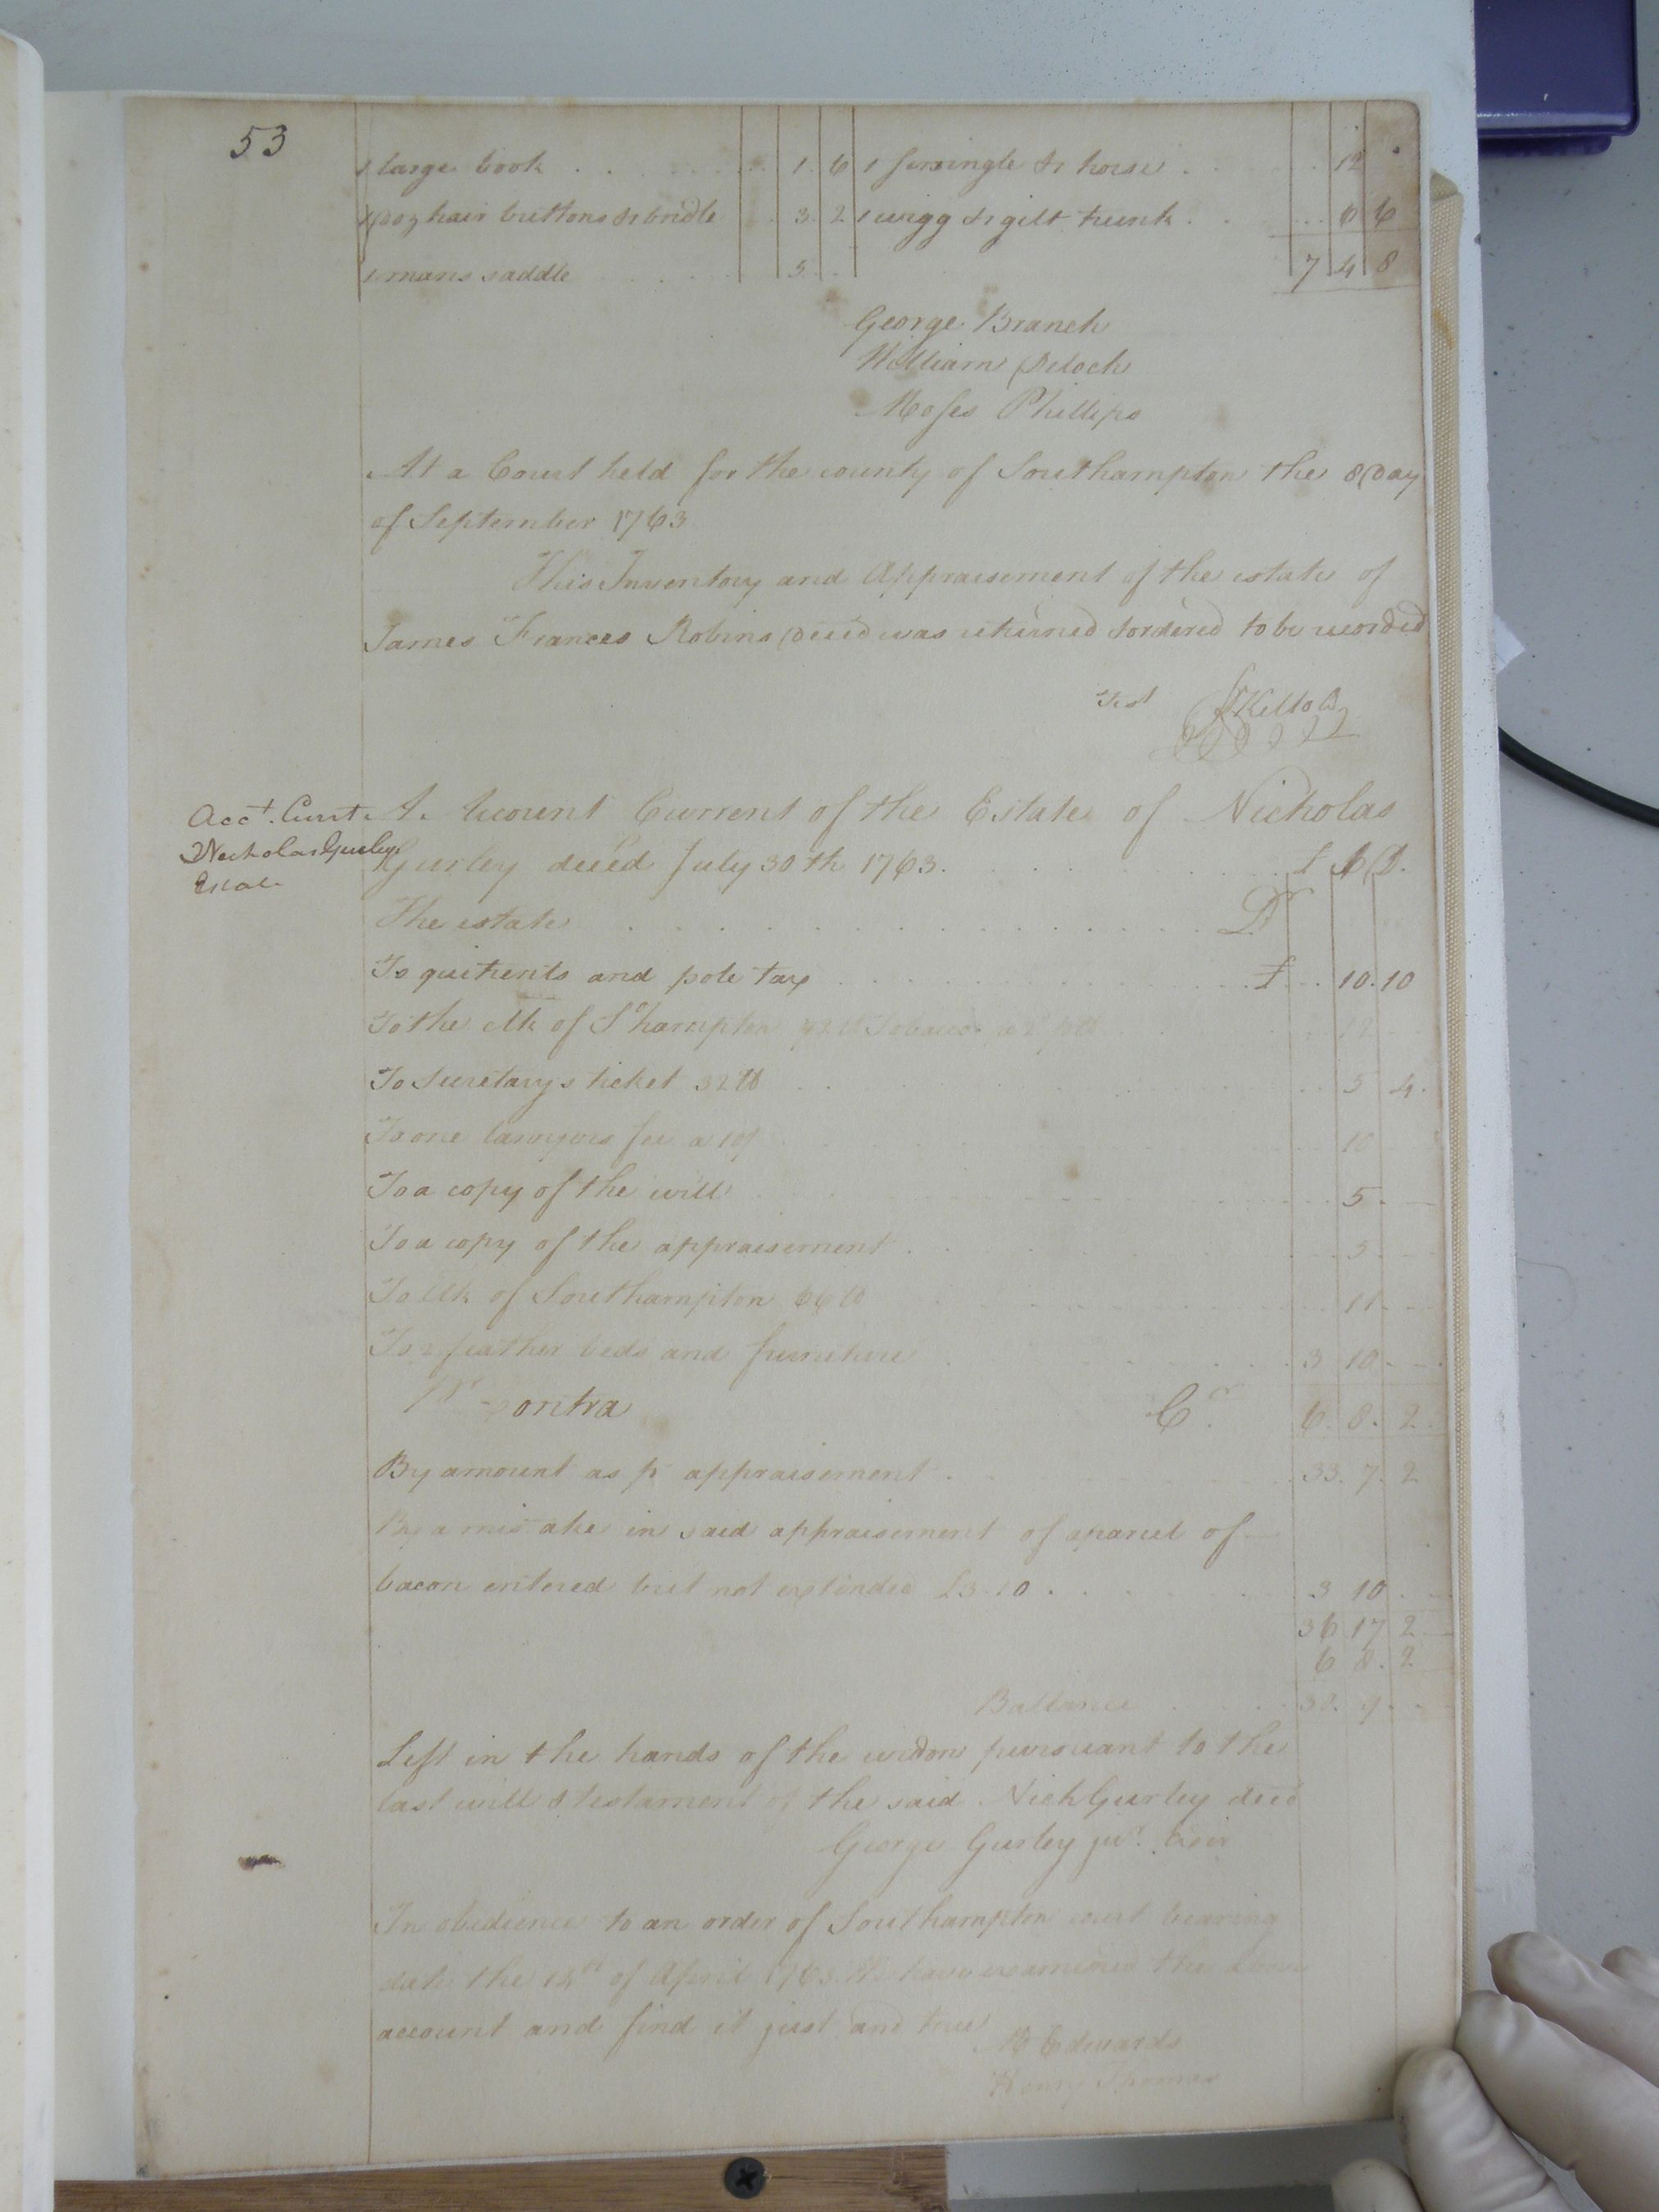 53
1 large book . . . 1. 6 1 sursingle & 1 horse . . . 12
1 Doz hair buttons & 1 bridle . 3. 2 1 wigg & 1 gilt trunk . . . 6 6
1 mans saddle . . . 5 . . 7 4 8
George Branch
William Deloch
Moses Phillips
At a Court held for the county of Southampton the 8 Day
of September 1763
This Inventory and Appraisement of the estate of
James Frances Robins Deced was returned & ordered to be recorded
Test JKello
Acct. Curt.
Nicholas Gurley
A. Account Current of the Estate of Nicholas
Gurley deced July 30th 1763. . . . £ S D.
The estate . . . Dr
To quitrents and pole tax . . . £ . . 10. 10
To the Clk of S'hampton 72 lb Tobacco a 2d 12
To Secretarys ticket 32 lb . . . 5 4.
To one lawyers fee a 10/ . . . 10
To a copy of the will . . . 5 . —
To a copy of the appraisement . . . 5 . —
To Clk of Southampton 66 lb . . . 11 . —
To 2 feather beds and furniture . . . 3 10 . —
Pr Contra Cr. 6. 8. 2.
By amount as pr appraisement . . . 33. 7. 2
By a mistake in said appraisement of a parcel of
bacon entered but not extended £3.10 . . . 3 10 . .
36 17 2
6 8. 2
Ballance . . . 30. 9 . .
Left in the hands of the widow pursuant to the
last will & testament of the said Nich Gurley deced
George Gurley jur.
In obedience to an order of Southampton court bearing
date the 14th of April 1763 We have examined the above
account and find it just and true
Edwards
Henry Thomas